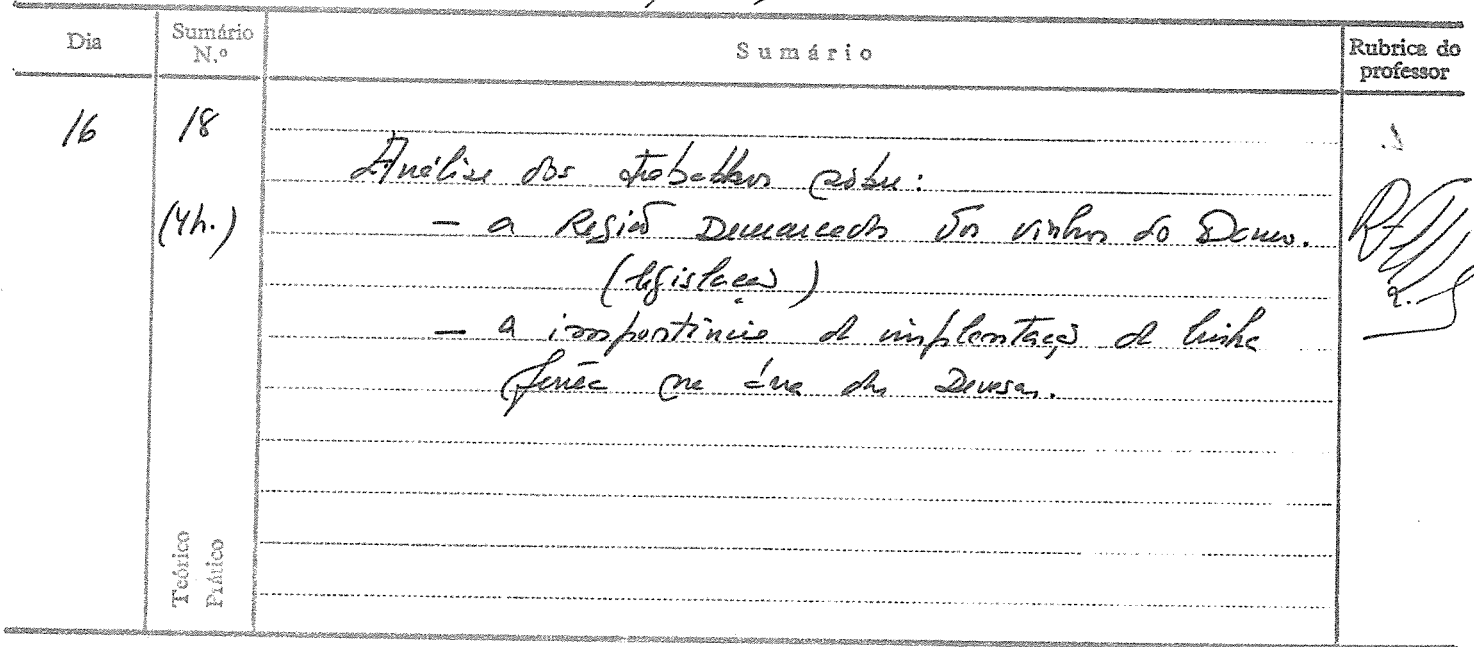 Dia
Sumário N.º
Sumário
Rubrica do professor
16
18
(4h.)
Análise dos trabalhos sobre:
— a Região Demarcada dos vinhos do Douro.
(legislação)
— a importância da implantação da linha
férrea na área das Devesas.
Teórico
Prático